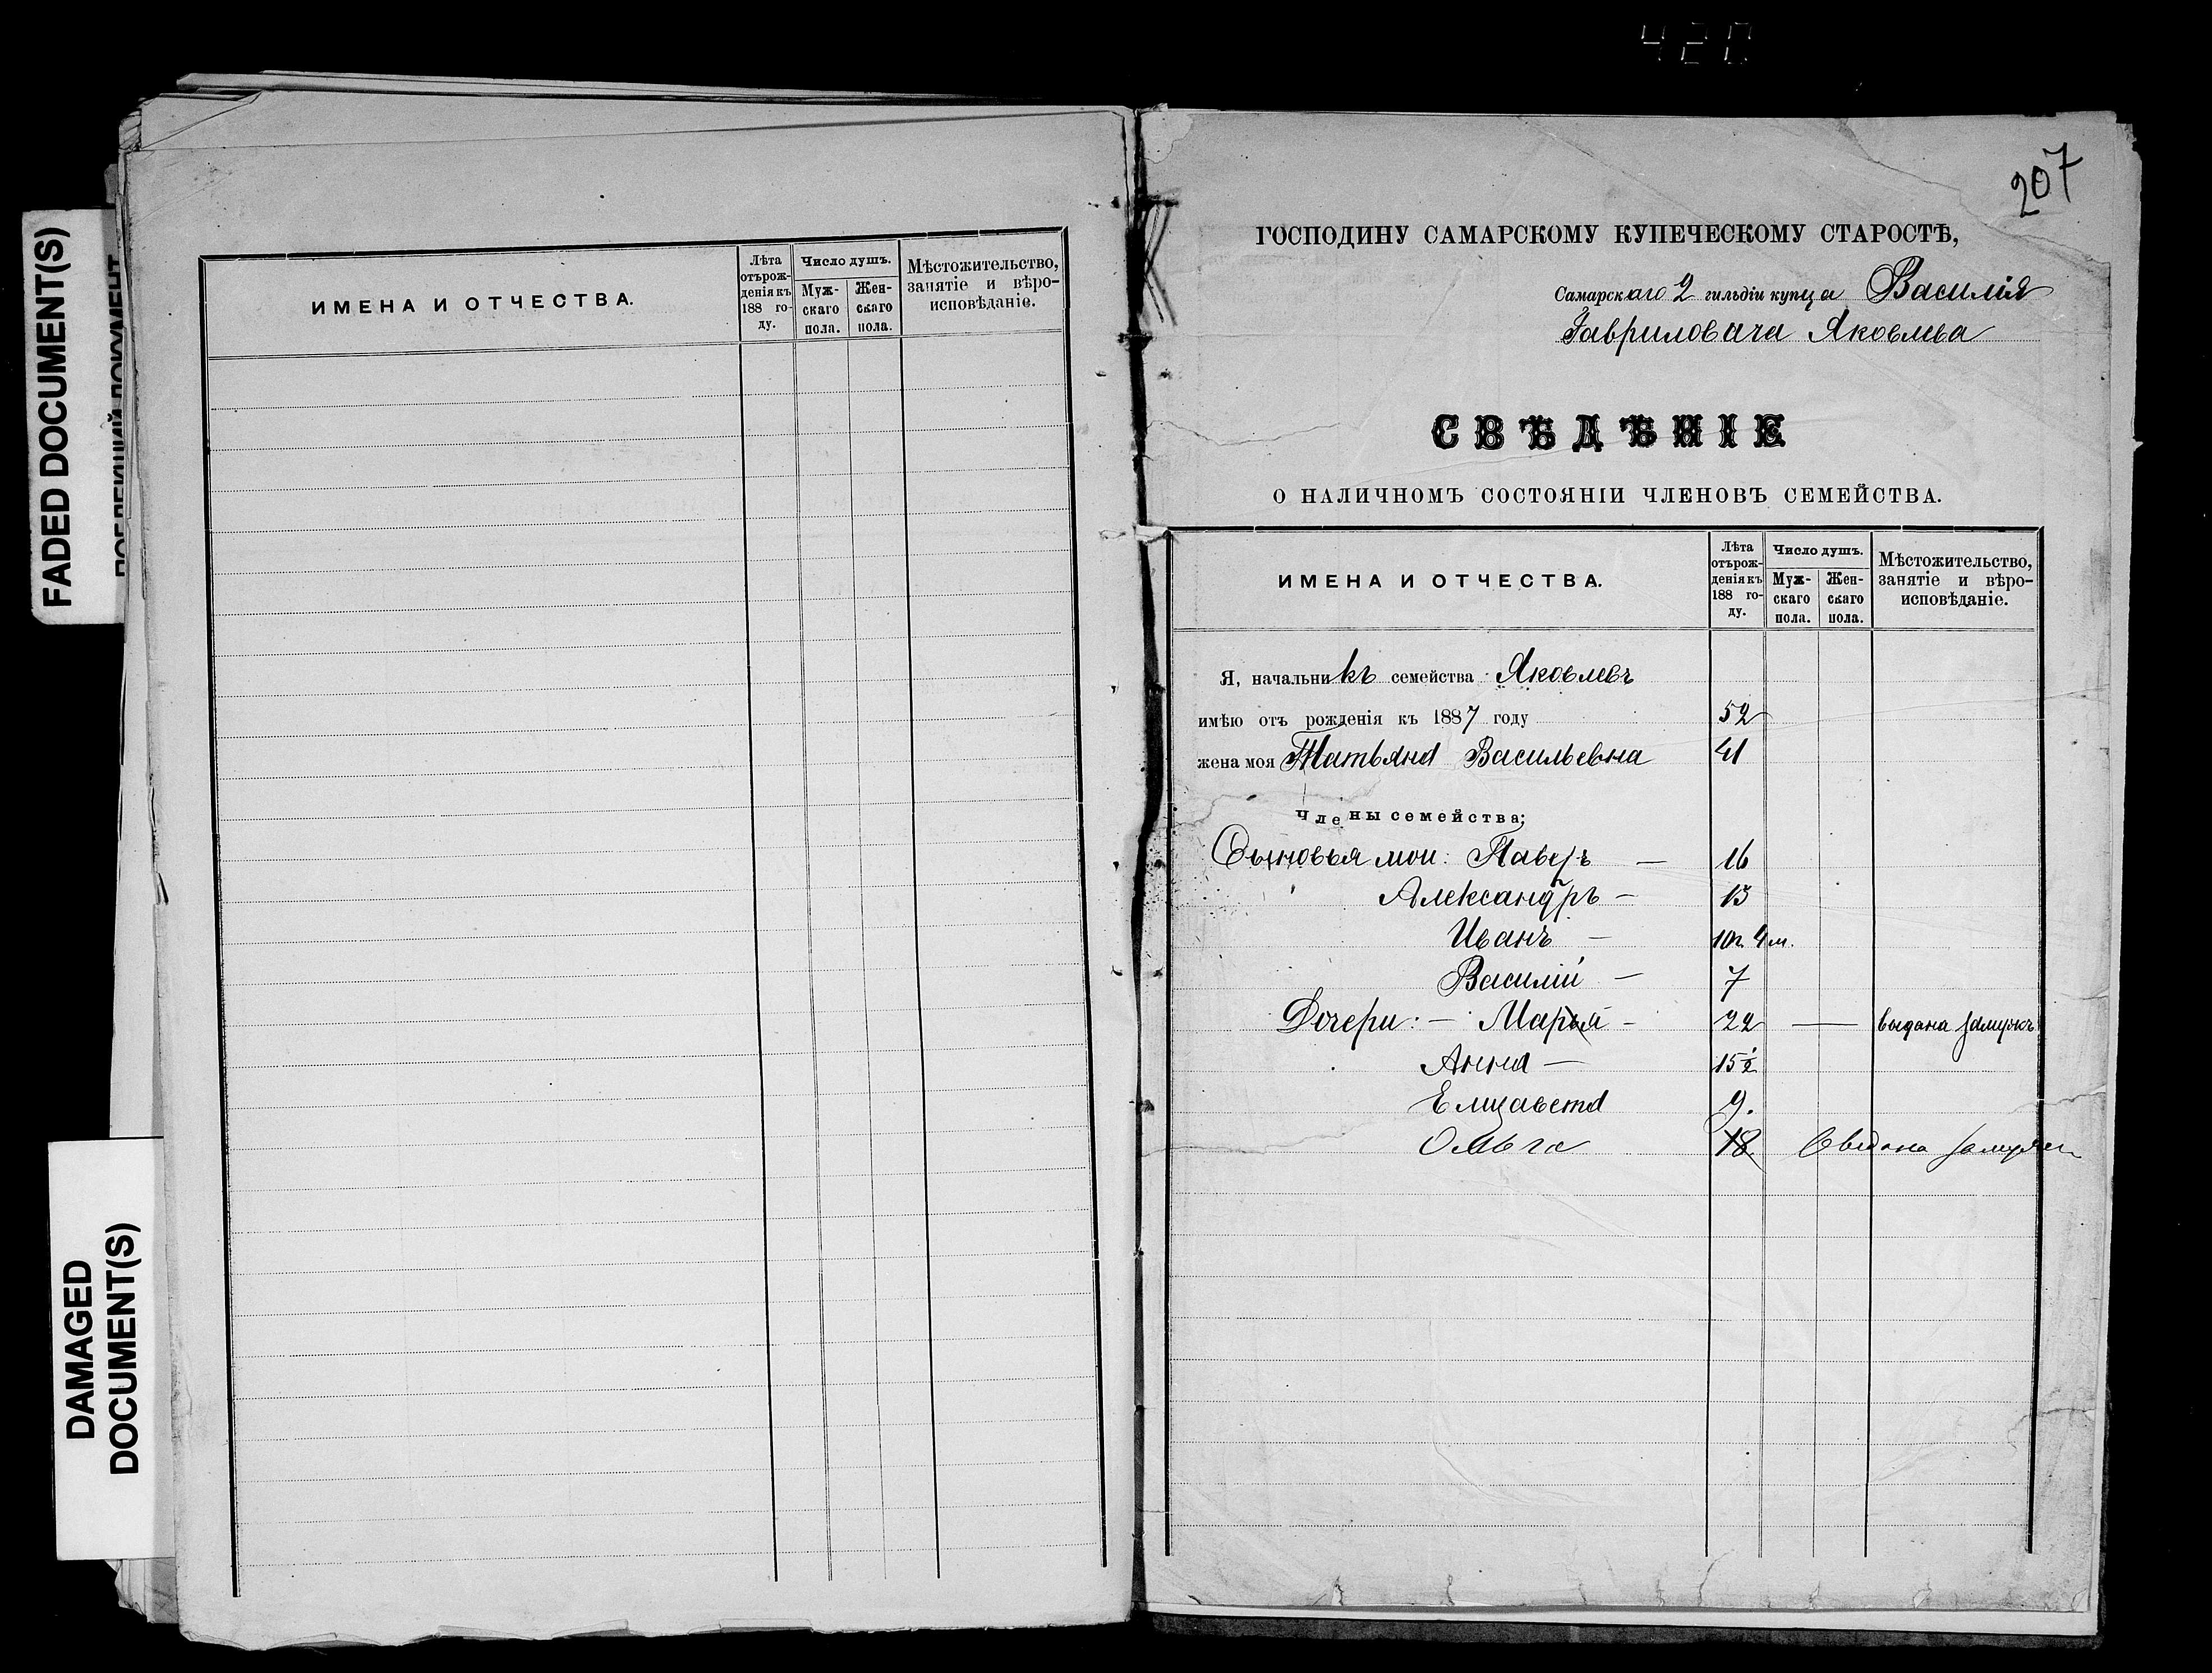 420
FADED DOCUMENT(S)
DAMAGED
DOCUMENT(S)
ИМЕНА И ОТЧЕСТВА.
Лѣта
отърож-
денія къ
188 го-
ду.
Число душъ.
Муж-
скаго
пола.
Жен-
скаго
пола.
Мѣстожительство,
занятіе и вѣро-
исповѣданіе.
207
ГОСПОДИНУ САМАРСКОМУ КУПЕЧЕСКОМУ СТАРОСТѢ,
Самарскаго 2 гильдіи купца Василія
Гавриловича Яковлева
СВѢДѢНІЕ
О НАЛИЧНОМЪ СОСТОЯНІИ ЧЛЕНОВЪ СЕМЕЙСТВА.
ИМЕНА И ОТЧЕСТВА.
Лѣта
отърож-
денія къ
188 го-
ду.
Число душъ.
Муж-
скаго
пола.
Жен-
скаго
пола.
Мѣстожительство,
занятіе и вѣро-
исповѣданіе.
Я, начальникъ семейства Яковлевъ
имѣю отъ рожденія къ 1887 году 52
жена моя Татьяна Васильевна 41
Члены семейства;
Сыновья мои: Павелъ — 16
Александръ — 13
Иванъ — 10 г. 4 м.
Василій — 7
Дочери: — Марья — 22 — выдана замужъ
Анна — 15½
Елизавета 9.
Ольга 18 выдана замужъ